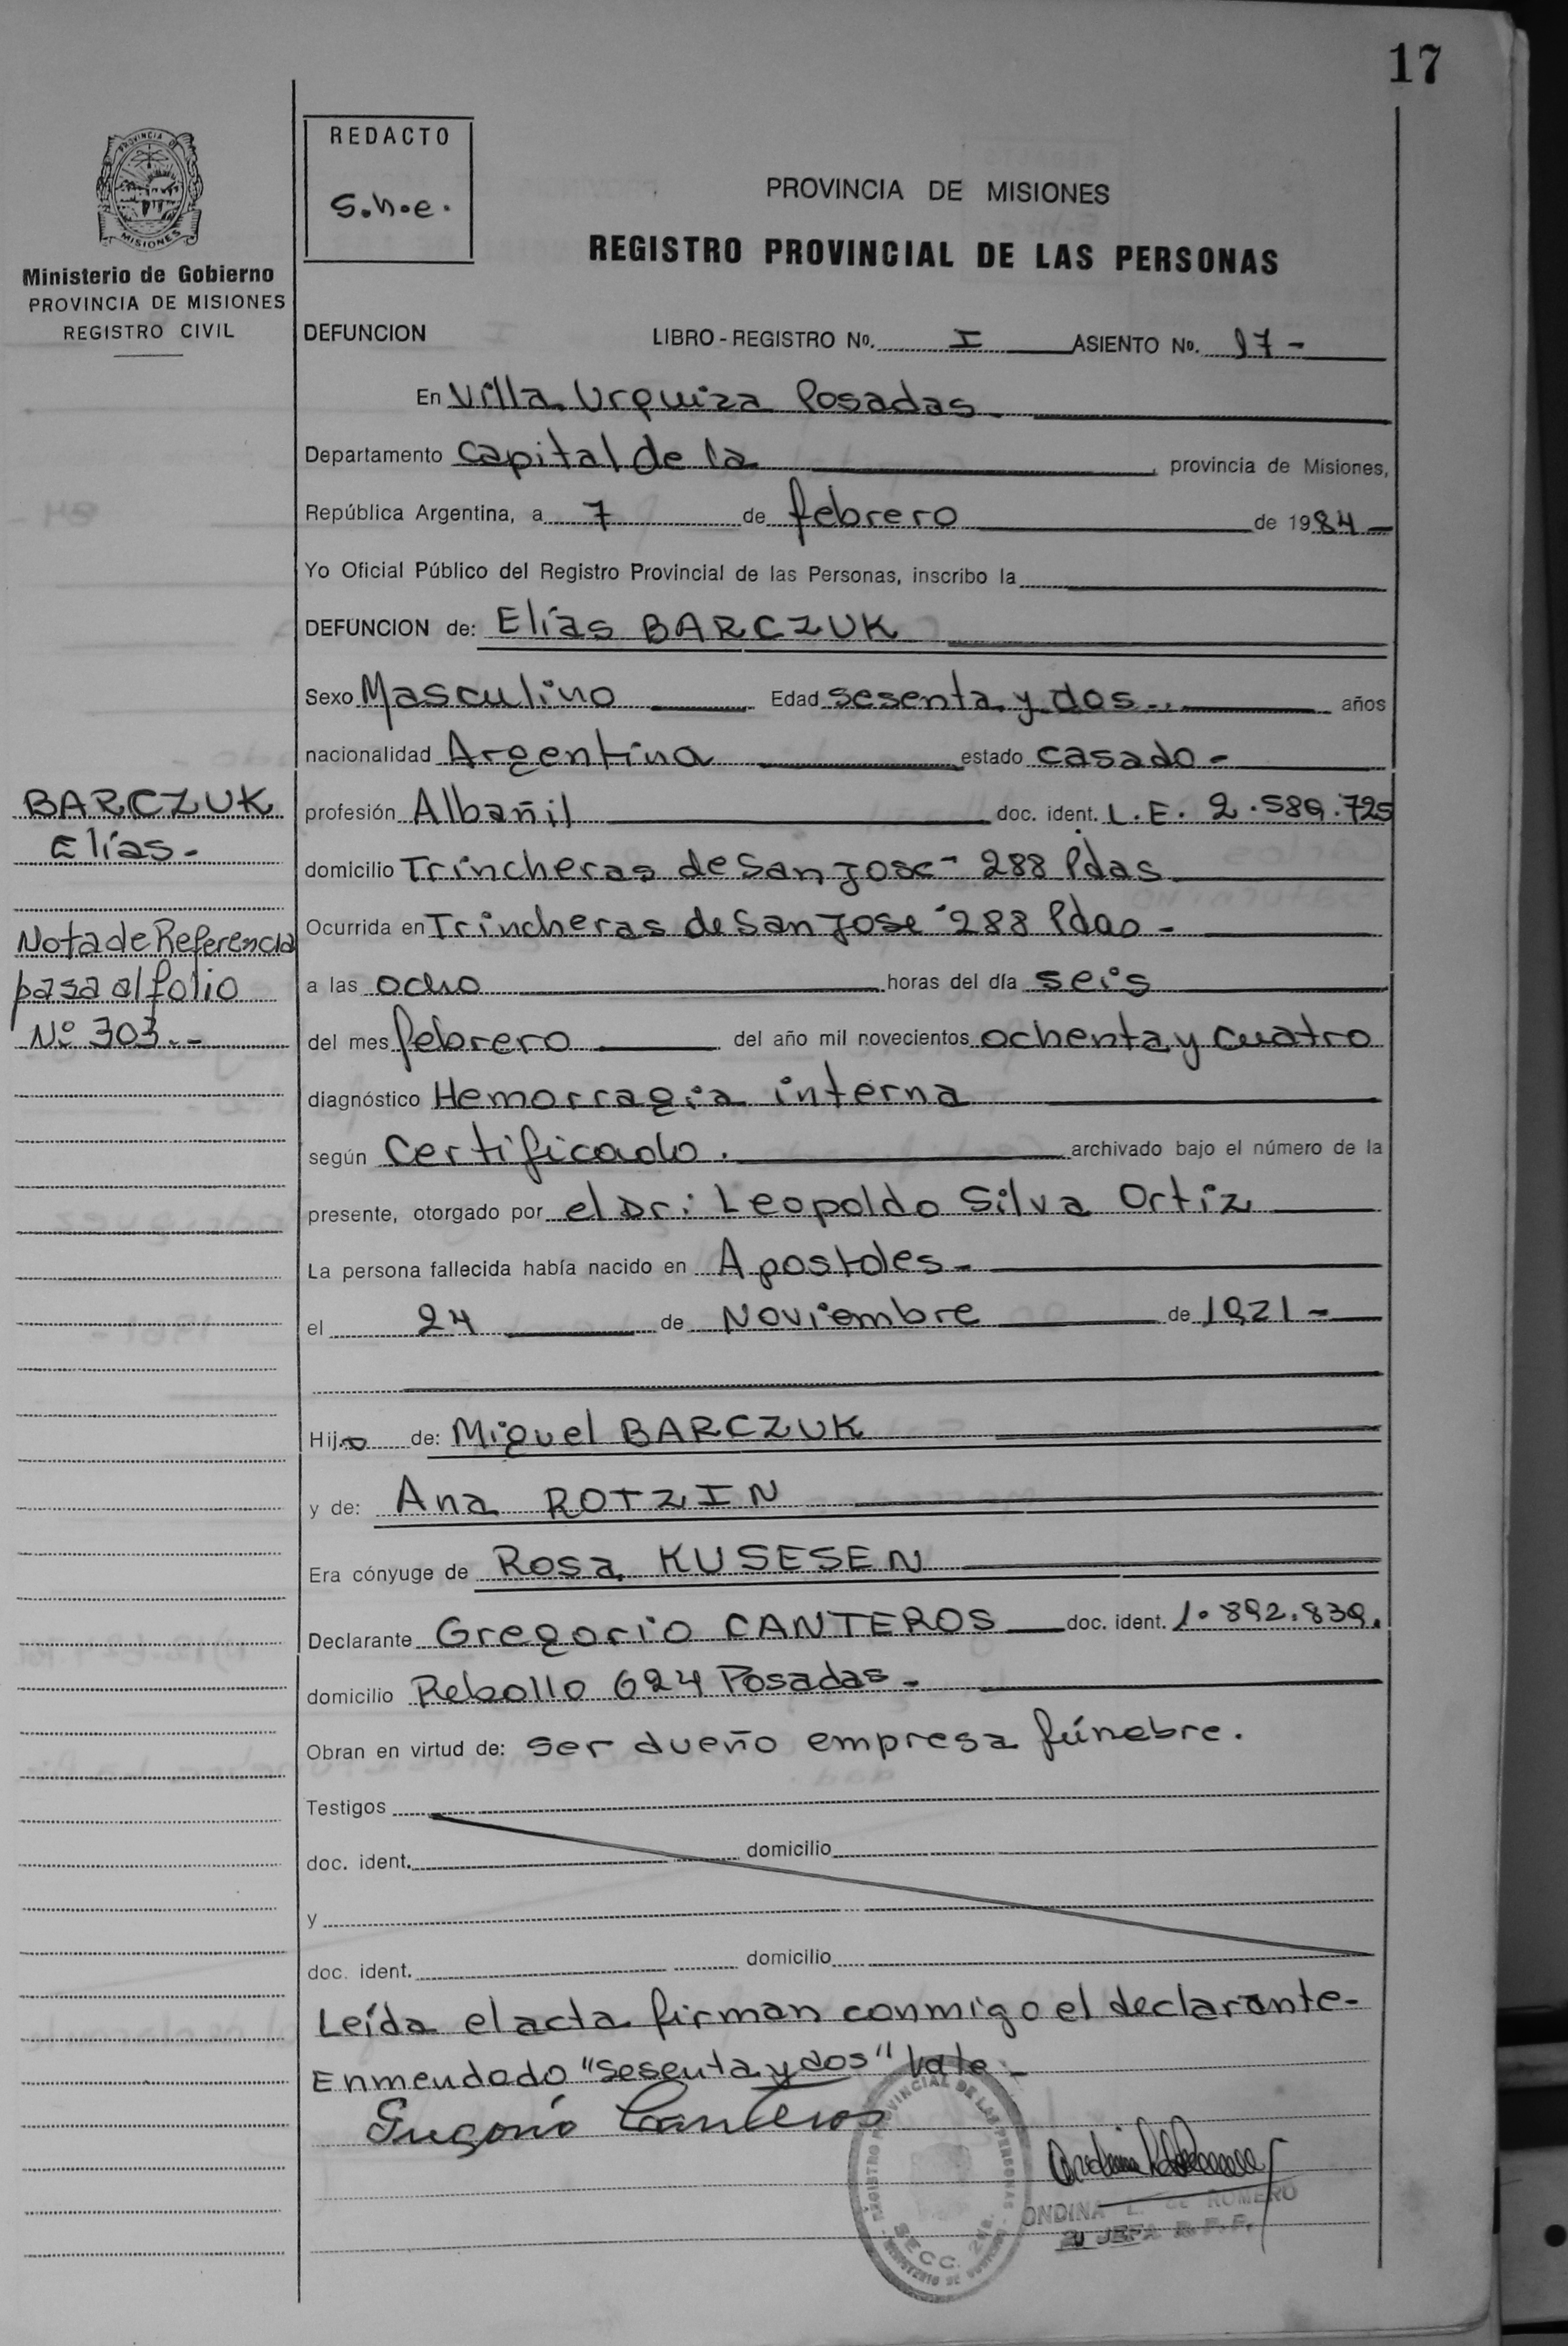 17
PROVINCIA DE
MISIONES
Ministerio de Gobierno
PROVINCIA DE MISIONES
REGISTRO CIVIL
REDACTO
S.h.e.
PROVINCIA DE MISIONES
REGISTRO PROVINCIAL DE LAS PERSONAS
DEFUNCION LIBRO - REGISTRO No. I ASIENTO No. 17 -
En Villa Urquiza Posadas -
Departamento Capital de la , provincia de Misiones,
República Argentina, a 7 de febrero de 1984 -
Yo Oficial Público del Registro Provincial de las Personas, inscribo la
DEFUNCION de: Elías BARCZUK
Sexo Masculino Edad sesenta y dos - años
nacionalidad Argentina estado casado -
profesión Albañil doc. ident. L.E. 2.589.725
domicilio Trincheras de San Jose - 288 Pdas
Ocurrida en Trincheras de San Jose - 288 Pdas -
a las ocho horas del día seis
del mes febrero del año mil novecientos ochenta y cuatro
diagnóstico Hemorragia interna
según Certificado. archivado bajo el número de la
presente, otorgado por el Dr: Leopoldo Silva Ortiz
La persona fallecida había nacido en Apostoles -
el 24 de Noviembre de 1921 -
Hijo de: Miguel BARCZUK
y de: Ana ROTZIN
Era cónyuge de Rosa KUSESEN
Declarante Gregorio CANTEROS doc. ident. 1.892.839.
domicilio Rebollo 624 Posadas -
Obran en virtud de: ser dueño empresa fúnebre.
Testigos
doc. ident. domicilio
y
doc. ident. domicilio
Leída el acta firman conmigo el declarante -
Enmendado "sesenta y dos" Vale -
Gregorio Canteros
REGISTRO PROVINCIAL DE LAS PERSONAS
SECC. 2da.
MINISTERIO DE GOBIERNO
ONDINA L. de ROMERO
JEFA
BARCZUK
Elías -
Nota de Referencia
pasa al folio
Nº 303. -